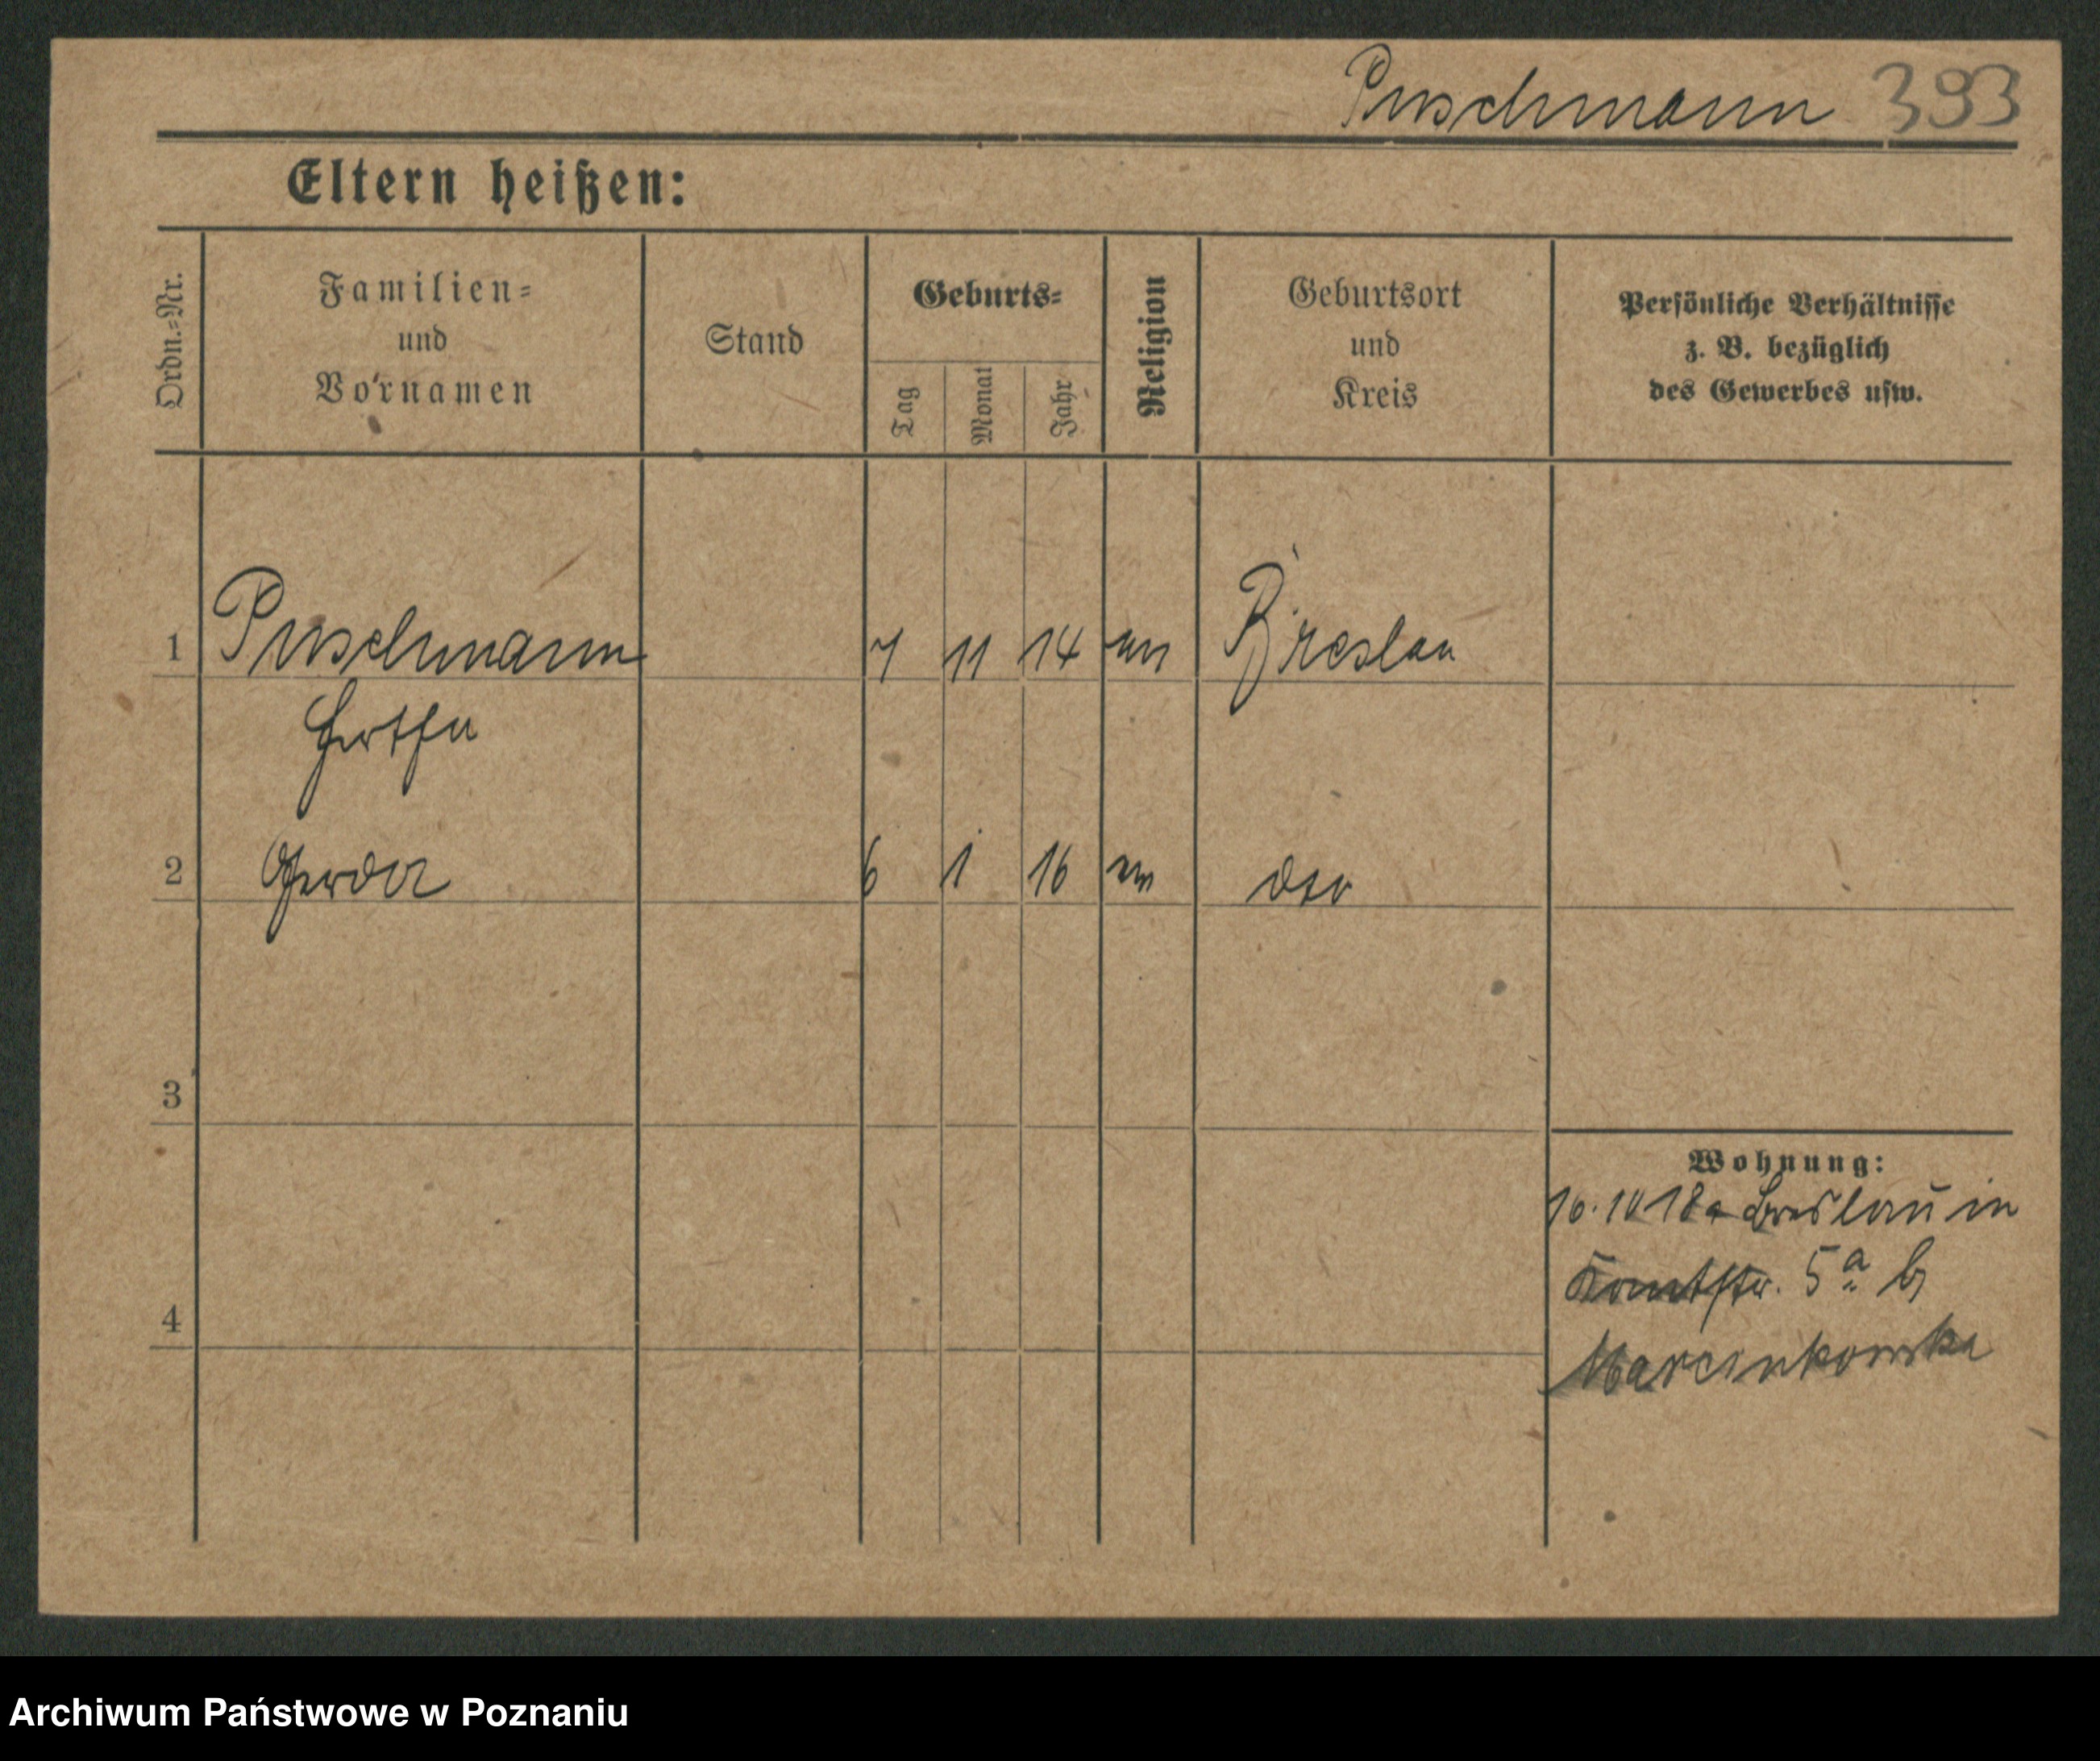 Puschmann 393
Eltern heißen:
Ordn.-Nr.
Familien-
und
Vornamen
Stand
Geburts-
Tag
Monat
Jahr
Religion
Geburtsort
und
Kreis
Persönliche Verhältnisse
z. B. bezüglich
des Gewerbes usw.
1 Puschmann 7 11 14 Breslau
Hertha
2 Gerda 6 1 16 dto
3
4
Wohnung:
18 a Breslau in
5a b
Marcinkowska
Archiwum Państwowe w Poznaniu